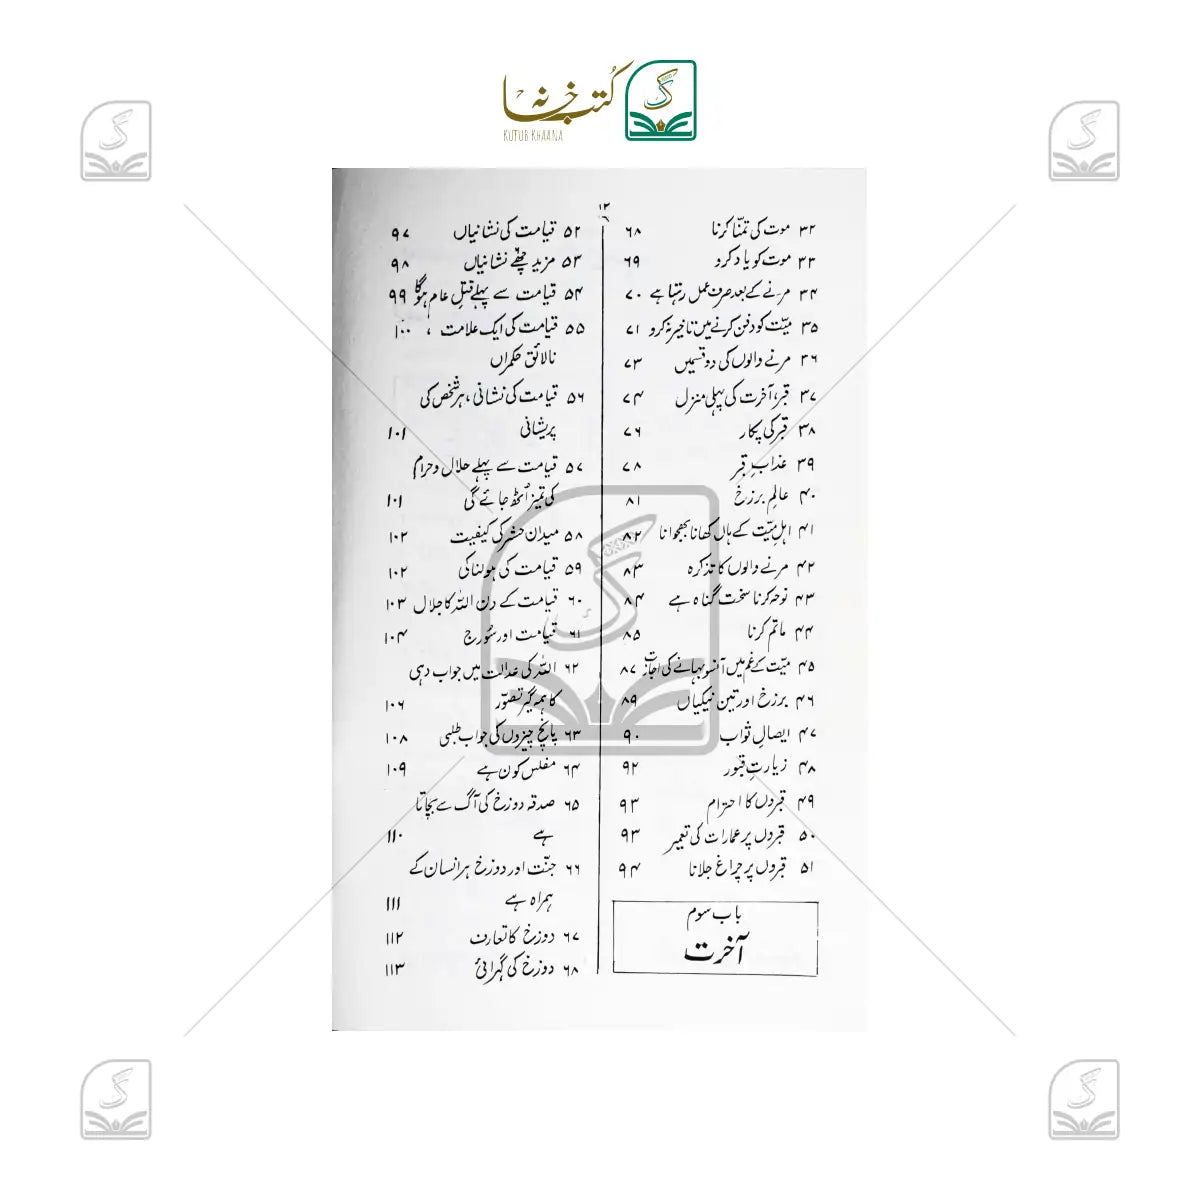 کتب خانہ
KUTUB KHAANA
۱۲
۳۲ موت کی تمنّا کرنا ۶۸
۳۳ موت کو یاد کرو ۶۹
۳۴ مرنے کے بعد صرف عمل رہتا ہے ۷۰
۳۵ میّت کو دفن کرنے میں تاخیر نہ کرو ۷۱
۳۶ مرنے والوں کی دو قسمیں ۷۳
۳۷ قبر، آخرت کی پہلی منزل ۷۴
۳۸ قبر کی پکار ۷۶
۳۹ عذابِ قبر ۷۸
۴۰ عالمِ برزخ ۸۱
۴۱ اہلِ میّت کے ہاں کھانا بھجوانا ۸۲
۴۲ مرنے والوں کا تذکرہ ۸۳
۴۳ نوحہ کرنا سخت گناہ ہے ۸۴
۴۴ ماتم کرنا ۸۵
۴۵ میّت کے غم میں آنسو بہانے کی اجازت ۸۷
۴۶ برزخ اور تین نیکیاں ۸۹
۴۷ ایصالِ ثواب ۹۰
۴۸ زیارتِ قبور ۹۲
۴۹ قبروں کا احترام ۹۳
۵۰ قبروں پر عمارات کی تعمیر ۹۳
۵۱ قبروں پر چراغ جلانا ۹۴
باب سوم
آخرت
۵۲ قیامت کی نشانیاں ۹۷
۵۳ مزید چھے نشانیاں ۹۸
۵۴ قیامت سے پہلے قتلِ عام ہوگا ۹۹
۵۵ قیامت کی ایک علامت ، ۱۰۰
نالائق حکمراں
۵۶ قیامت کی نشانی، ہر شخص کی
پریشانی ۱۰۱
۵۷ قیامت سے پہلے حلال و حرام
کی تمیز اُٹھ جائے گی ۱۰۱
۵۸ میدانِ حشر کی کیفیت ۱۰۲
۵۹ قیامت کی ہولناکی ۱۰۲
۶۰ قیامت کے دن اللہ کا جلال ۱۰۳
۶۱ قیامت اور سُورج ۱۰۴
۶۲ اللہ کی عدالت میں جواب دہی
کا ہمہ گیر تصوّر ۱۰۶
۶۳ پانچ چیزوں کی جواب طلبی ۱۰۸
۶۴ مفلس کون ہے ۱۰۹
۶۵ صدقہ دوزخ کی آگ سے بچاتا
ہے ۱۱۰
۶۶ جنّت اور دوزخ ہر انسان کے
ہمراہ ہے ۱۱۱
۶۷ دوزخ کا تعارف ۱۱۲
۶۸ دوزخ کی گہرائی ۱۱۳